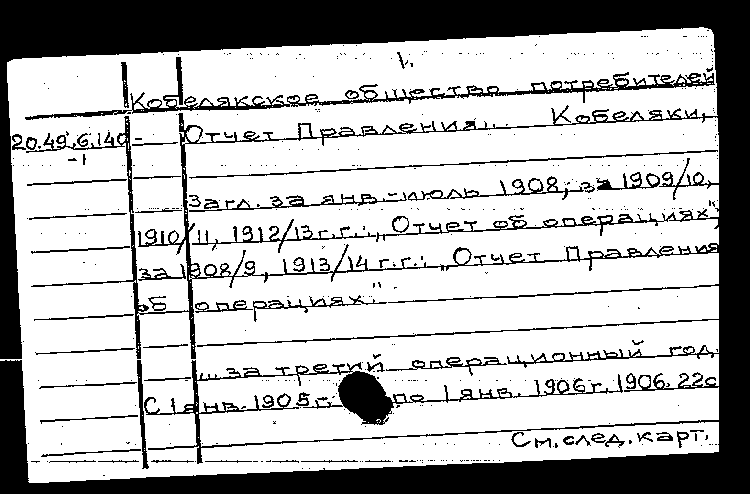 1.
Кобелякское общество потребителей
20.49.6.140 - Отчет Правления... Кобеляки,
-1
Загл. за янв.-июль 1908, за 1909/10,
1910/11, 1912/13 г.г.: „Отчет об операциях",
за 1908/9, 1913/14 г.г.: „Отчет Правления
об операциях."
... за третий операционный год.
С 1 янв. 1905 г. по 1 янв. 1906 г. 1906. 22с
См. след. карт.